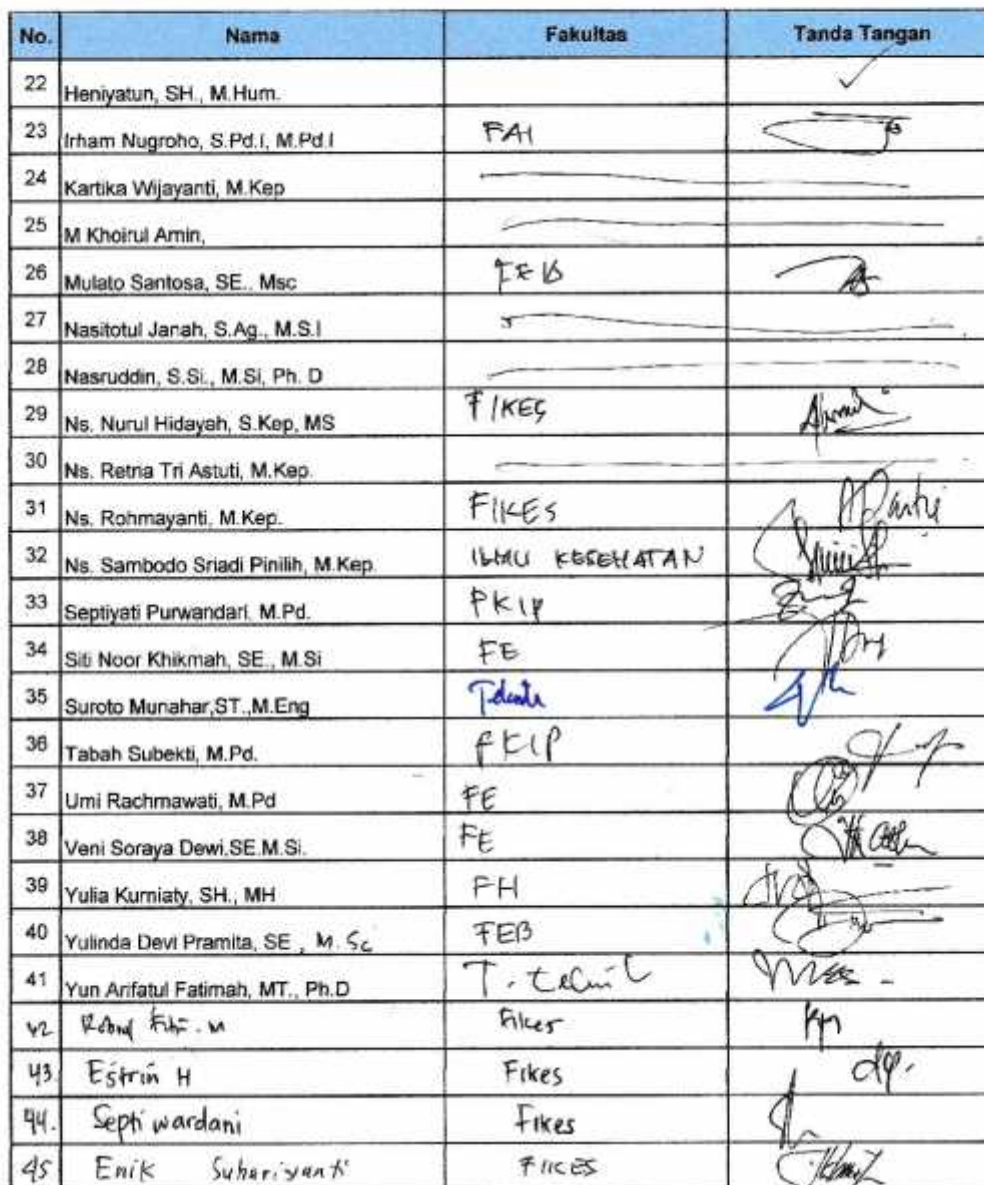 No. Nama Fakultas Tanda Tangan
22 Heniyatun, SH., M.Hum.
23 Irham Nugroho, S.Pd.I, M.Pd.I FAI
24 Kartika Wijayanti, M.Kep
25 M Khoirul Amin,
26 Mulato Santosa, SE., Msc
27 Nasitotul Janah, S.Ag., M.S.I
28 Nasruddin, S.Si., M.Si, Ph. D
29 Ns. Nurul Hidayah, S.Kep, MS FIKES
30 Ns. Retna Tri Astuti, M.Kep.
31 Ns. Rohmayanti, M.Kep. FIKES
32 Ns. Sambodo Sriadi Pinilih, M.Kep. ILMU KESEHATAN
33 Septiyati Purwandari, M.Pd. FKIP
34 Siti Noor Khikmah, SE., M.Si FE
35 Suroto Munahar,ST.,M.Eng
36 Tabah Subekti, M.Pd. FKIP
37 Umi Rachmawati, M.Pd FE
38 Veni Soraya Dewi,SE.M.Si. FE
39 Yulia Kurniaty, SH., MH FH
40 Yulinda Devi Pramita, SE , M. Sc FEB
41 Yun Arifatul Fatimah, MT., Ph.D T.
42 M Fikes
43 Estrin H Fikes
44. Septi wardani Fikes
45 Enik Suhariyanti FIKES